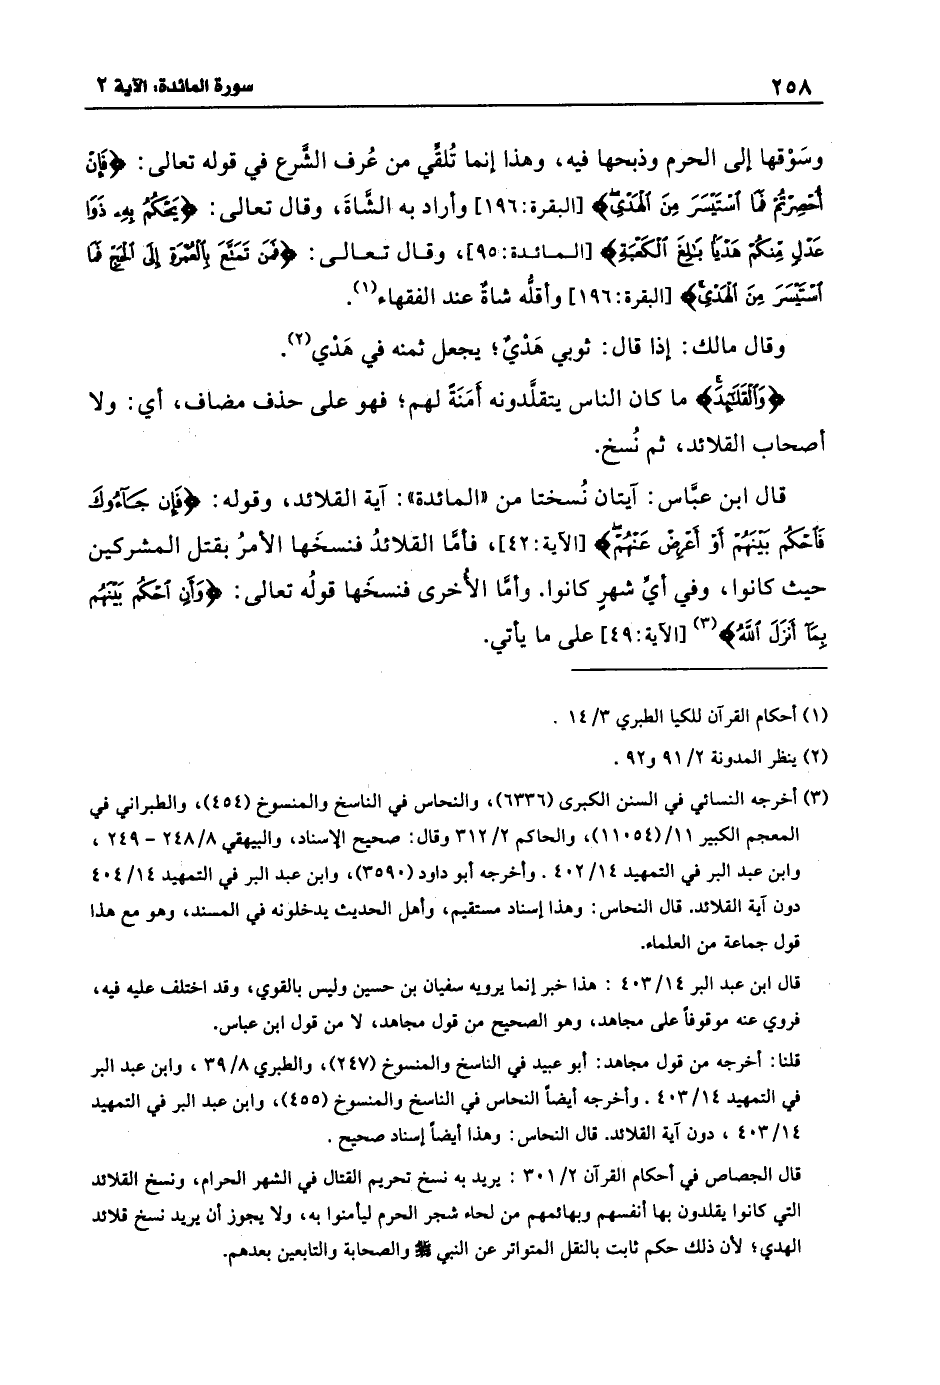 ٢٥٨
سورة المائدة: الآية ٢
وسَوْقها إلى الحرم وذبحها فيه، وهذا إنما تُلقِّي من عُرف الشَّرع في قوله تعالى: ﴿فَإِنْ
أُحْصِرْتُمْ فَمَا ٱسْتَيْسَرَ مِنَ ٱلْهَدْيِۖ﴾ [البقرة:١٩٦] وأراد به الشَّاةَ، وقال تعالى: ﴿يَحْكُمُ بِهِۦ ذَوَا
عَدْلٍ مِّنكُمْ هَدْيًۢا بَٰلِغَ ٱلْكَعْبَةِ﴾ [المائدة:٩٥]، وقال تعالى: ﴿فَمَن تَمَتَّعَ بِٱلْعُمْرَةِ إِلَى ٱلْحَجِّ فَمَا
ٱسْتَيْسَرَ مِنَ ٱلْهَدْيِۚ﴾ [البقرة:١٩٦] وأقلُّه شاةٌ عند الفقهاء(١).
وقال مالك: إذا قال: ثوبي هَدْيٌ؛ يجعل ثمنه في هَدْي(٢).
﴿وَٱلْقَلَٰٓئِدَۚ﴾ ما كان الناس يتقلَّدونه أَمَنَةً لهم؛ فهو على حذف مضاف، أي: ولا
أصحاب القلائد، ثم نُسخ.
قال ابن عبَّاس: آيتان نُسختا من «المائدة»: آية القلائد، وقوله: ﴿فَإِن جَآءُوكَ
فَٱحْكُم بَيْنَهُمْ أَوْ أَعْرِضْ عَنْهُمْۖ﴾ [الآية:٤٢]، فأمَّا القلائدُ فنسخَها الأمرُ بقتل المشركين
حيث كانوا، وفي أيِّ شهرٍ كانوا. وأمَّا الأُخرى فنسخَها قولُه تعالى: ﴿وَأَنِ ٱحْكُم بَيْنَهُم
بِمَآ أَنزَلَ ٱللَّهُ﴾(٣) [الآية:٤٩] على ما يأتي.
(١) أحكام القرآن للكيا الطبري ٣/ ١٤ .
(٢) ينظر المدونة ٢/ ٩١ و٩٢ .
(٣) أخرجه النسائي في السنن الكبرى (٦٣٣٦)، والنحاس في الناسخ والمنسوخ (٤٥٤)، والطبراني في
المعجم الكبير ١١/(١١٠٥٤)، والحاكم ٢/ ٣١٢ وقال: صحيح الإسناد، والبيهقي ٨/ ٢٤٨ - ٢٤٩ ،
وابن عبد البر في التمهيد ١٤/ ٤٠٢ . وأخرجه أبو داود (٣٥٩٠)، وابن عبد البر في التمهيد ١٤/ ٤٠٤
دون آية القلائد. قال النحاس: وهذا إسناد مستقيم، وأهل الحديث يدخلونه في المسند، وهو مع هذا
قول جماعة من العلماء.
قال ابن عبد البر ١٤/ ٤٠٣ : هذا خبر إنما يرويه سفيان بن حسين وليس بالقوي، وقد اختلف عليه فيه،
فروي عنه موقوفاً على مجاهد، وهو الصحيح من قول مجاهد، لا من قول ابن عباس.
قلنا: أخرجه من قول مجاهد: أبو عبيد في الناسخ والمنسوخ (٢٤٧)، والطبري ٨/ ٣٩ ، وابن عبد البر
في التمهيد ١٤/ ٤٠٣ . وأخرجه أيضاً النحاس في الناسخ والمنسوخ (٤٥٥)، وابن عبد البر في التمهيد
١٤/ ٤٠٣ ، دون آية القلائد. قال النحاس: وهذا أيضاً إسناد صحيح .
قال الجصاص في أحكام القرآن ٢/ ٣٠١ : يريد به نسخ تحريم القتال في الشهر الحرام، ونسخ القلائد
التي كانوا يقلدون بها أنفسهم وبهائمهم من لحاء شجر الحرم ليأمنوا به، ولا يجوز أن يريد نسخ قلائد
الهدي؛ لأن ذلك حكم ثابت بالنقل المتواتر عن النبي ﷺ والصحابة والتابعين بعدهم.